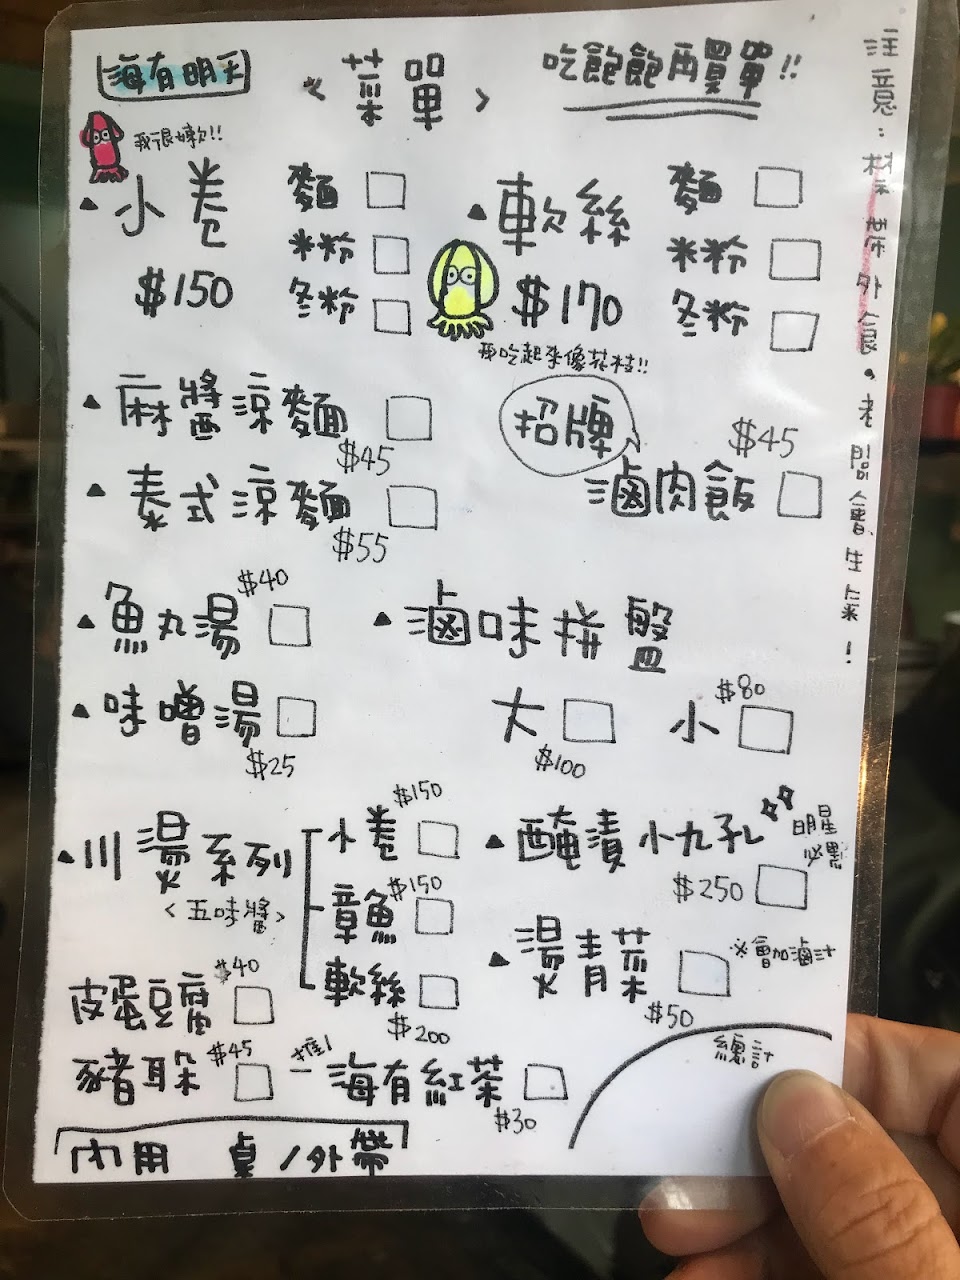 海有明天
<菜單>
吃飽飽再買單!!
我很嫩欸!!
小卷
$150
麵
米粉
冬粉
軟絲
$170
麵
米粉
冬粉
再吃起來像花枝!!
麻醬涼麵
$45
泰式涼麵
$55
招牌
滷肉飯
$45
魚丸湯
$40
味噌湯
$25
滷味拼盤
大
$100
小
$80
川燙系列
<五味醬>
小卷
$150
章魚
$150
軟絲
$200
醃漬小九孔
明星
必點
$250
燙青菜
※會加滷汁
$50
皮蛋豆腐
$40
豬耳朵
$45
推!
海有紅茶
$30
總計
內用 桌/外帶
注意:禁帶外食,老闆會生氣!